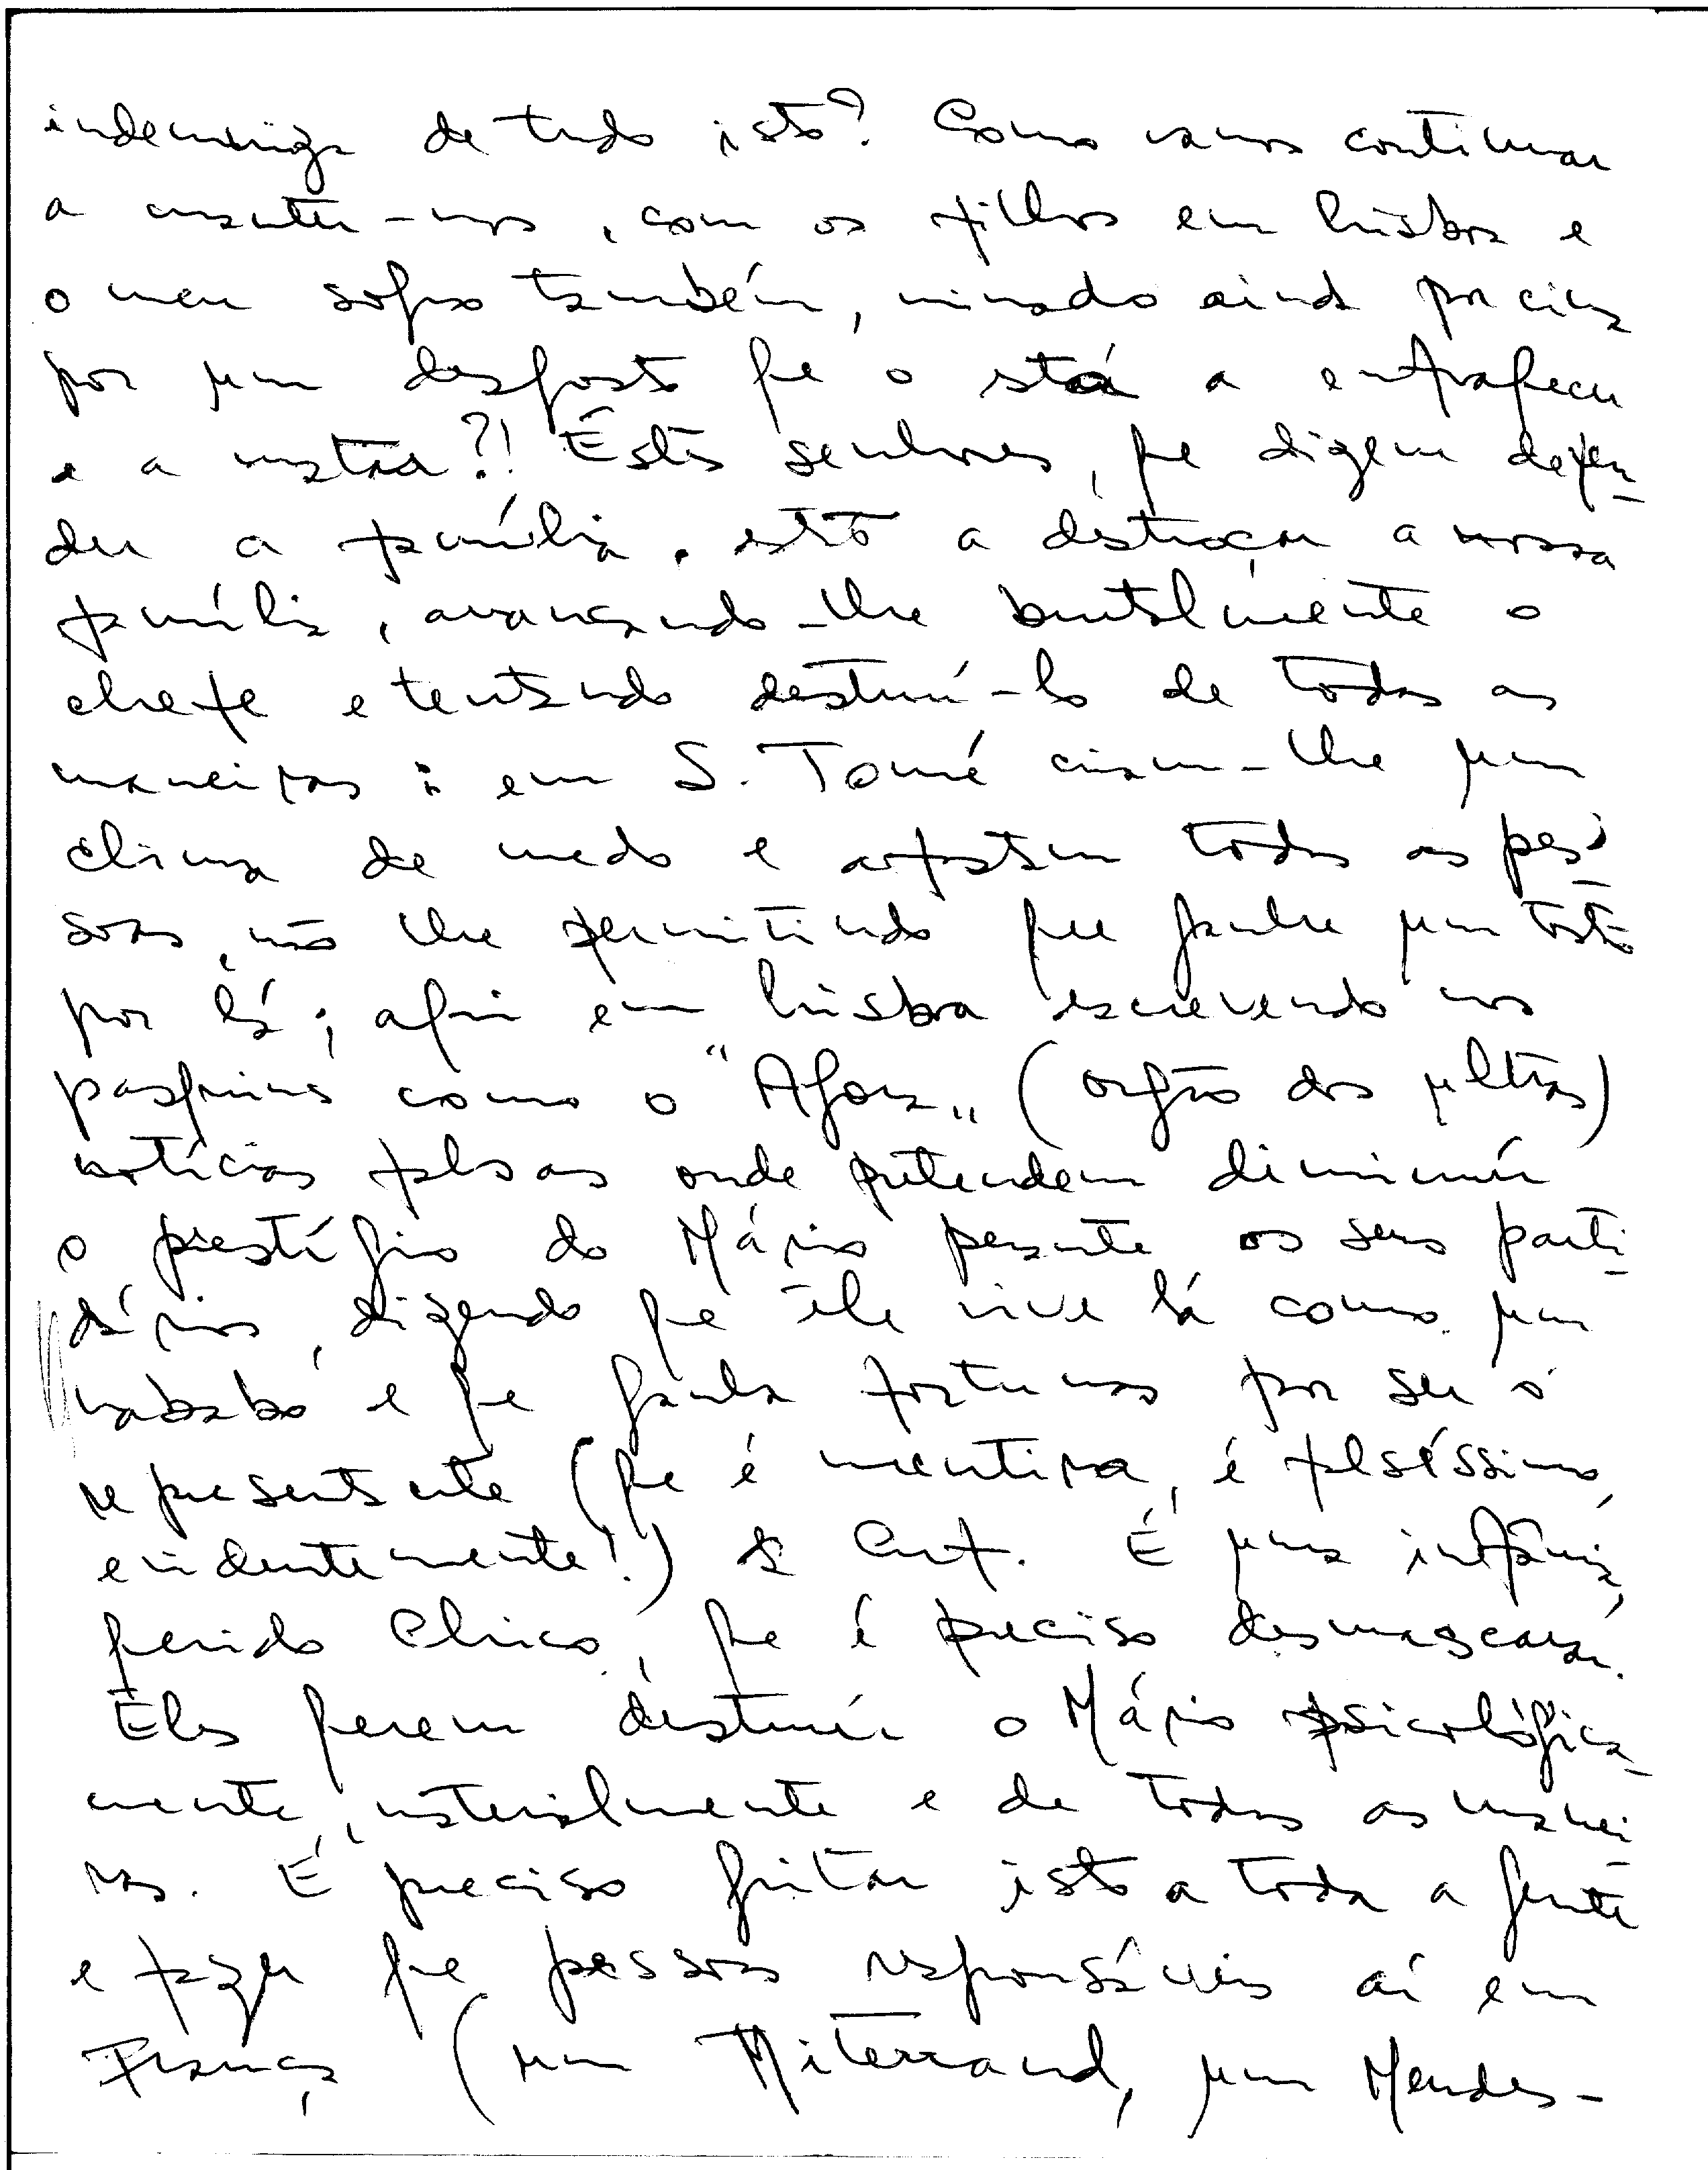 indemniza de tudo isto? Como vamos continuar
a manter-nos, com os filhos em Lisboa e
o meu sogro também, minado ainda por cima
por um desgosto que o está a enfraquecer
e a matar?! Êstes senhores, que dizem defen-
der a família, estão a destroçar a nossa
família, arrancando-lhe brutalmente o
chefe e tentando destruí-lo de todas as
maneiras: em S. Tomé criam-lhe um
clima de medo e afastam todas as pes-
soas, não lhe permitindo que ganhe um tostão
por lá; aqui em Lisboa escrevendo nos
pasquins como o "Agora" (orgão dos ultras)
notícias falsas onde pretendem diminuír
o prestígio do Mário perante os seus parti-
dários, dizendo que êle vive lá como um
nababo e que ganha fortunas por ser o
representante (que é mentira, é falsíssimo,
evidentemente!) da Cuf. É uma infâmia,
querido Chico, que é preciso desmascarar.
Êles querem destruír o Mário psicológica-
mente, materialmente e de todas as manei-
ras. É preciso gritar isto a toda a gente
e fazer que pessoas responsáveis aí em
França (um Miterrand, um Mendes-